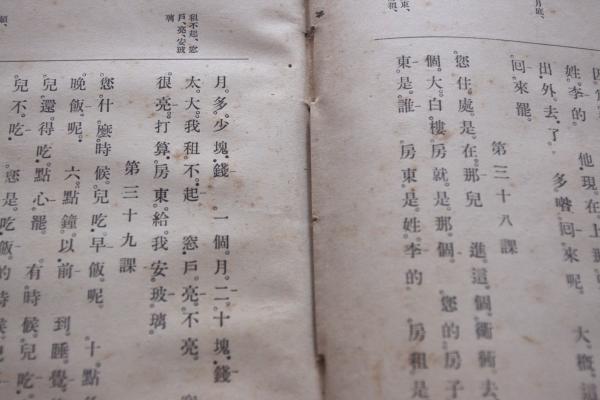 月底、
姓李的 他現在上
出外去了 多喒回來呢 大槪這
回來罷
第三十八課
您住處是在那兒 進這個衚衕去
個大白樓房就是那個 您的房子
東是誰 房東是姓李的 房租是
租不起、窓
戶、亮、安玻
璃
月多少塊錢 一個月二十塊錢
太大我租不起 窓戶亮不亮
很亮打算房東給我安玻璃
第三十九課
您什麼時候兒吃早飯呢 十點
晚飯呢 六點鐘以前 到睡覺
兒還得吃點心罷 有時候兒吃
兒不吃 您是吃飯的時候